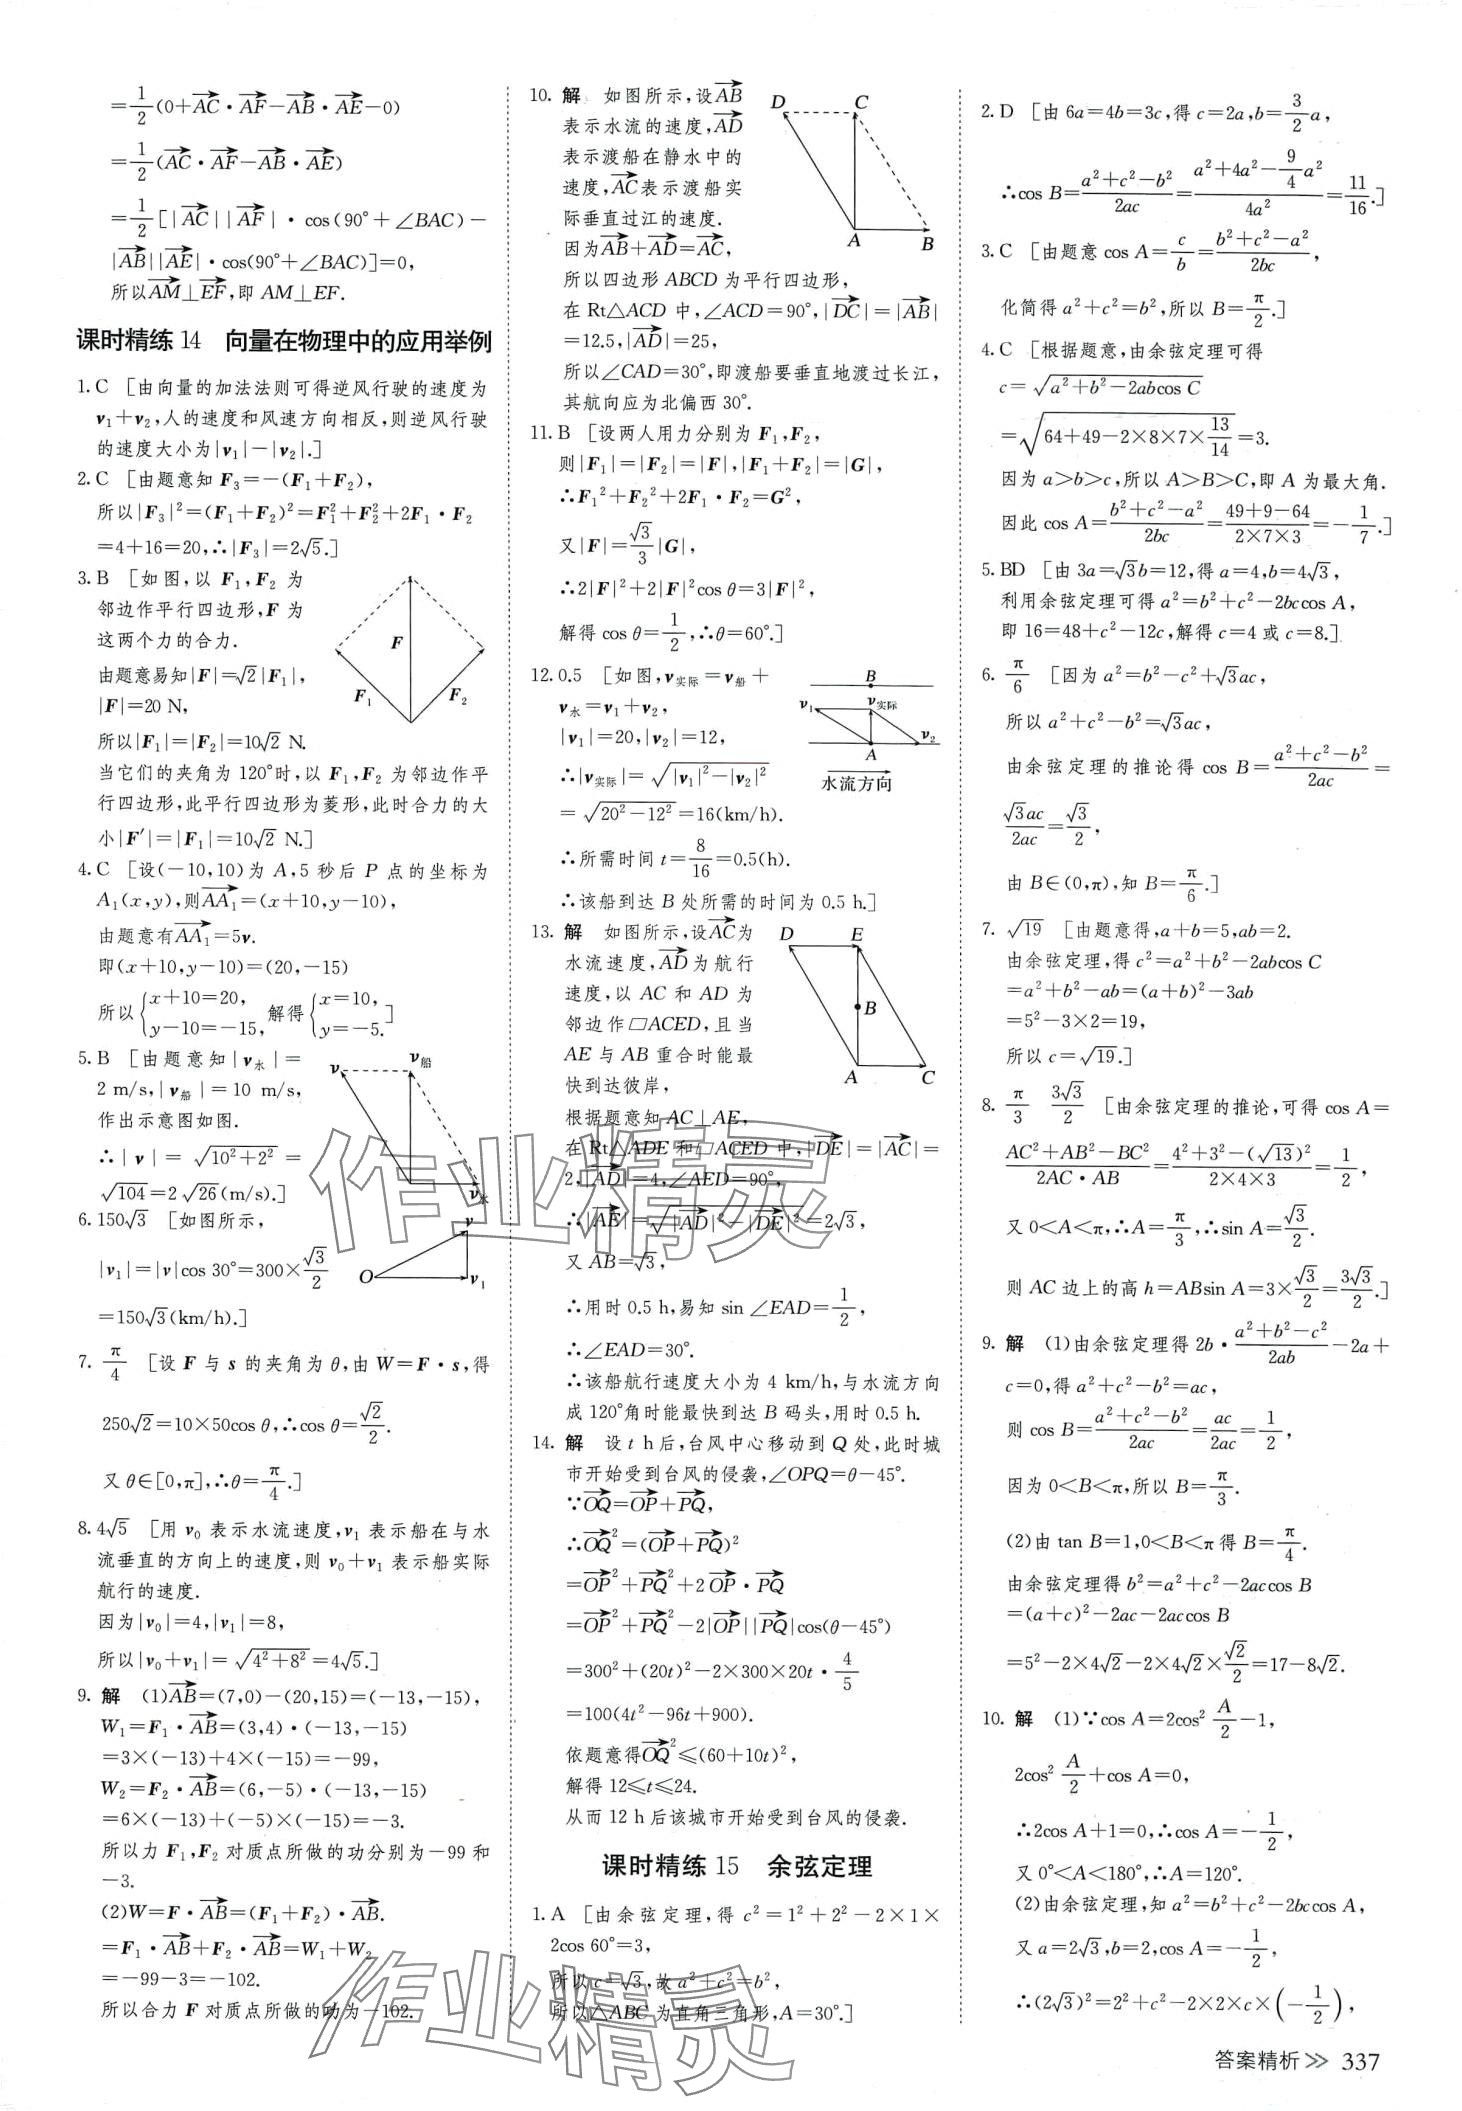 =1/2(0+AC→·AF→-AB→·AE→-0)
=1/2(AC→·AF→-AB→·AE→)
=1/2[|AC→||AF→|·cos(90°+∠BAC)-
|AB→||AE→|·cos(90°+∠BAC)]=0,
所以AM→⊥EF→,即 AM⊥EF.
课时精练 14 向量在物理中的应用举例
1.C [由向量的加法法则可得逆风行驶的速度为
v₁+v₂,人的速度和风速方向相反,则逆风行驶
的速度大小为|v₁|-|v₂|.]
2.C [由题意知 F₃=-(F₁+F₂),
所以|F₃|²=(F₁+F₂)²=F₁²+F₂²+2F₁·F₂
=4+16=20,∴|F₃|=2√5.]
3.B [如图,以 F₁,F₂ 为
邻边作平行四边形,F 为
这两个力的合力.
由题意易知|F|=√2|F₁|,
|F|=20 N,
所以|F₁|=|F₂|=10√2 N.
当它们的夹角为 120°时,以 F₁,F₂ 为邻边作平
行四边形,此平行四边形为菱形,此时合力的大
小|F′|=|F₁|=10√2 N.]
F
F₁
F₂
4.C [设(-10,10)为 A,5 秒后 P 点的坐标为
A₁(x,y),则AA₁→=(x+10,y-10),
由题意有AA₁→=5v.
即(x+10,y-10)=(20,-15)
所以{x+10=20, y-10=-15, 解得{x=10, y=-5.]
5.B [由题意知|v水|=
2 m/s,|v船|=10 m/s,
作出示意图如图.
∴|v|=√(10²+2²)=
√104=2√26(m/s).]
v
v船
v水
6.150√3 [如图所示,
|v₁|=|v|cos 30°=300×√3/2
=150√3(km/h).]
v
O
v₁
7.π/4 [设 F 与 s 的夹角为 θ,由 W=F·s,得
250√2=10×50cos θ,∴cos θ=√2/2.
又 θ∈[0,π],∴θ=π/4.]
8.4√5 [用 v₀ 表示水流速度,v₁ 表示船在与水
流垂直的方向上的速度,则 v₀+v₁ 表示船实际
航行的速度.
因为|v₀|=4,|v₁|=8,
所以|v₀+v₁|=√(4²+8²)=4√5.]
9.解 (1)AB→=(7,0)-(20,15)=(-13,-15),
W₁=F₁·AB→=(3,4)·(-13,-15)
=3×(-13)+4×(-15)=-99,
W₂=F₂·AB→=(6,-5)·(-13,-15)
=6×(-13)+(-5)×(-15)=-3.
所以力 F₁,F₂ 对质点所做的功分别为-99 和
-3.
(2)W=F·AB→=(F₁+F₂)·AB→.
=F₁·AB→+F₂·AB→=W₁+W₂
=-99-3=-102.
所以合力 F 对质点所做的功为-102.
10.解 如图所示,设AB→
表示水流的速度,AD→
表示渡船在静水中的
速度,AC→表示渡船实
际垂直过江的速度.
因为AB→+AD→=AC→,
所以四边形 ABCD 为平行四边形,
在 Rt△ACD 中,∠ACD=90°,|DC→|=|AB→|
=12.5,|AD→|=25,
所以∠CAD=30°,即渡船要垂直地渡过长江,
其航向应为北偏西 30°.
D C
A B
11.B [设两人用力分别为 F₁,F₂,
则|F₁|=|F₂|=|F|,|F₁+F₂|=|G|,
∴F₁²+F₂²+2F₁·F₂=G²,
又|F|=√3/3|G|,
∴2|F|²+2|F|²cos θ=3|F|²,
解得 cos θ=1/2,∴θ=60°.]
12.0.5 [如图,v实际=v船+
v水=v₁+v₂,
|v₁|=20,|v₂|=12,
∴|v实际|=√(|v₁|²-|v₂|²)
=√(20²-12²)=16(km/h).
∴所需时间 t=8/16=0.5(h).
∴该船到达 B 处所需的时间为 0.5 h.]
B
v₁ v实际
A v₂
水流方向
13.解 如图所示,设AC→为
水流速度,AD→为航行
速度,以 AC 和 AD 为
邻边作▱ACED,且当
AE 与 AB 重合时能最
快到达彼岸,
根据题意知 AC⊥AE,
在 Rt△ADE 和▱ACED 中,|DE→|=|AC→|=
2,|AD→|=4,∠AED=90°,
∴|AE→|=√(|AD→|²-|DE→|²)=2√3,
又 AB=√3,
∴用时 0.5 h,易知 sin ∠EAD=1/2,
∴∠EAD=30°.
∴该船航行速度大小为 4 km/h,与水流方向
成 120°角时能最快到达 B 码头,用时 0.5 h.
D E
B
A C
14.解 设 t h 后,台风中心移动到 Q 处,此时城
市开始受到台风的侵袭,∠OPQ=θ-45°.
∵OQ→=OP→+PQ→,
∴OQ→²=(OP→+PQ→)²
=OP→²+PQ→²+2OP→·PQ→
=OP→²+PQ→²-2|OP→||PQ→|cos(θ-45°)
=300²+(20t)²-2×300×20t·4/5
=100(4t²-96t+900).
依题意得OQ→²≤(60+10t)²,
解得 12≤t≤24.
从而 12 h 后该城市开始受到台风的侵袭.
课时精练 15 余弦定理
1.A [由余弦定理,得 c²=1²+2²-2×1×
2cos 60°=3,
所以 c=√3,故 a²+c²=b²,
所以△ABC 为直角三角形,A=30°.]
2.D [由 6a=4b=3c,得 c=2a,b=3/2a,
∴cos B=(a²+c²-b²)/2ac=(a²+4a²-9/4a²)/4a²=11/16.]
3.C [由题意 cos A=c/b=(b²+c²-a²)/2bc,
化简得 a²+c²=b²,所以 B=π/2.]
4.C [根据题意,由余弦定理可得
c=√(a²+b²-2abcos C)
=√(64+49-2×8×7×13/14)=3.
因为 a>b>c,所以 A>B>C,即 A 为最大角.
因此 cos A=(b²+c²-a²)/2bc=(49+9-64)/(2×7×3)=-1/7.]
5.BD [由 3a=√3b=12,得 a=4,b=4√3,
利用余弦定理可得 a²=b²+c²-2bccos A,
即 16=48+c²-12c,解得 c=4 或 c=8.]
6.π/6 [因为 a²=b²-c²+√3ac,
所以 a²+c²-b²=√3ac,
由余弦定理的推论得 cos B=(a²+c²-b²)/2ac=
√3ac/2ac=√3/2,
由 B∈(0,π),知 B=π/6.]
7.√19 [由题意得,a+b=5,ab=2.
由余弦定理,得 c²=a²+b²-2abcos C
=a²+b²-ab=(a+b)²-3ab
=5²-3×2=19,
所以 c=√19.]
8.π/3 3√3/2 [由余弦定理的推论,可得 cos A=
(AC²+AB²-BC²)/(2AC·AB)=(4²+3²-(√13)²)/(2×4×3)=1/2,
又 0<A<π,∴A=π/3,∴sin A=√3/2.
则 AC 边上的高 h=ABsin A=3×√3/2=3√3/2.]
9.解 (1)由余弦定理得 2b·(a²+b²-c²)/2ab-2a+
c=0,得 a²+c²-b²=ac,
则 cos B=(a²+c²-b²)/2ac=ac/2ac=1/2,
因为 0<B<π,所以 B=π/3.
(2)由 tan B=1,0<B<π得 B=π/4.
由余弦定理得 b²=a²+c²-2accos B
=(a+c)²-2ac-2accos B
=5²-2×4√2-2×4√2×√2/2=17-8√2.
10.解 (1)∵cos A=2cos²A/2-1,
2cos²A/2+cos A=0,
∴2cos A+1=0,∴cos A=-1/2,
又 0°<A<180°,∴A=120°.
(2)由余弦定理,知 a²=b²+c²-2bccos A,
又 a=2√3,b=2,cos A=-1/2,
∴(2√3)²=2²+c²-2×2×c×(-1/2),
作业精灵
作业精灵
答案精析>> 337